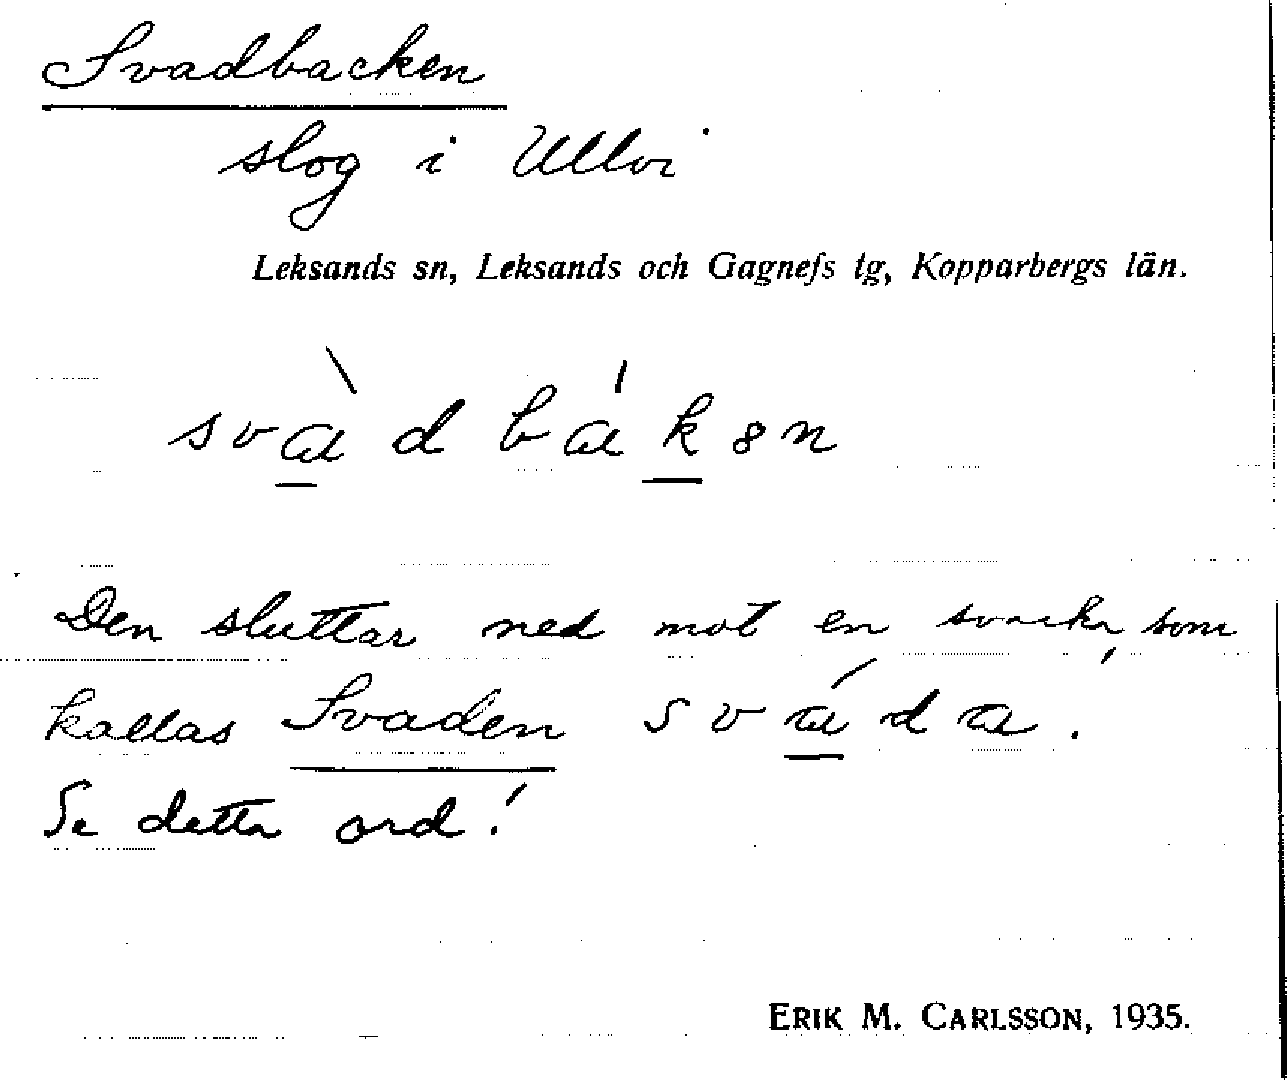 Svadbacken
slog i Ullvi
Leksands sn, Leksands och Gagnefs tg, Kopparbergs län.
svàd bákən
Den sluttar ned mot en svacka, som
kallas Svaden sváda.
Se detta ord!
ERIK M. CARLSSON, 1935.